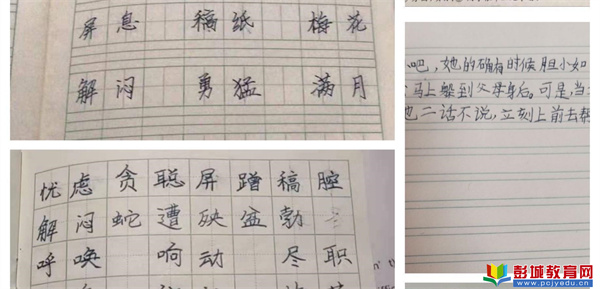 屏息 稿纸 梅花
解闷 勇猛 满月
忧虑 贪 聪 屏 蹭 稿 腔
解闷 蛇 遭 殃 盆 勃
呼唤 响动 尽职
吧，她的确有时候胆小如
马上躲到父母身后。可是，当
二话不说，立刻上前去
彭城教育网
www.pcjyedu.cn